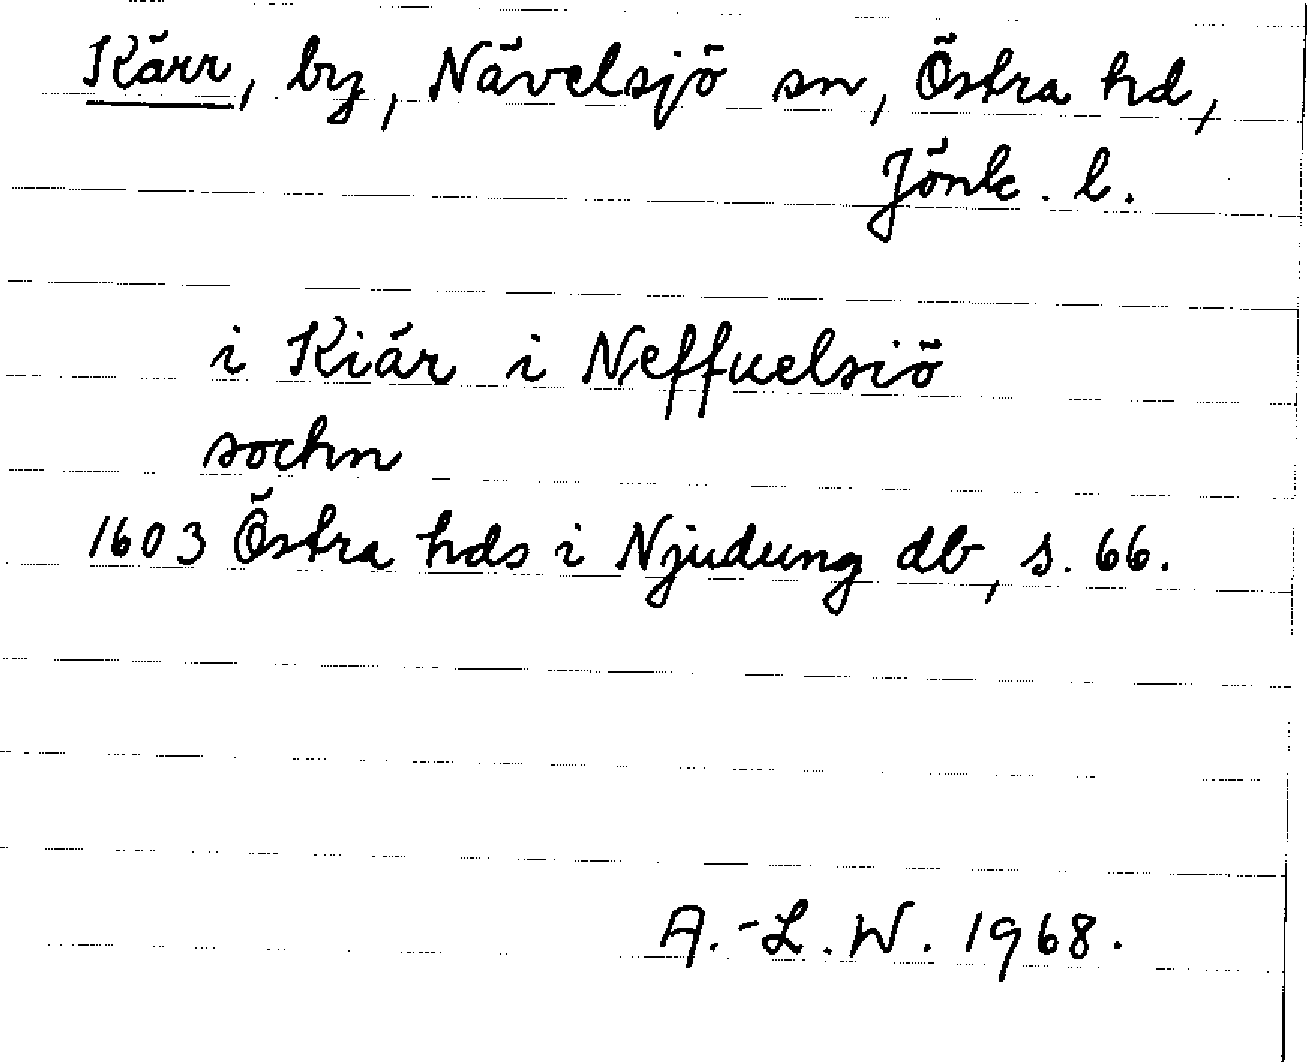 Kärr, by, Nävelsjö sn, Östra hd,
Jönk. l.
i Kiär i Neffuelsiö
sochn
1603 Östra hds i Njudung db, s. 66.
A.-L. W. 1968.